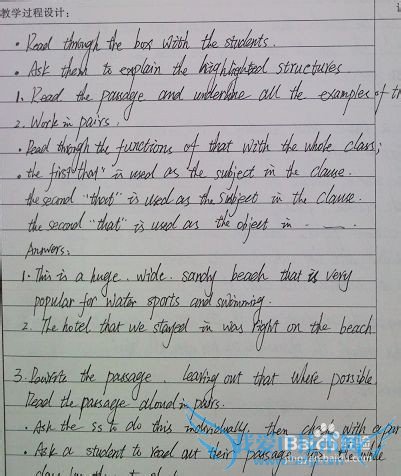 教学过程设计:
• Read through the box with the students.
• Ask them to explain the highlighted structures
1. Read the passage and underline all the examples of
2. Work in pairs.
• Read through the functions of that with the whole class;
• the first "that" is used as the subject in the clause.
the second "that" is used as the subject in the clause.
the second "that" is used as the object in
Answers:
1. This is a huge, wide, sandy beach that is very
popular for water sports and swimming.
2. The hotel that we stayed in was right on the beach
3. Rewrite the passage, leaving out that where possible.
Read the passage aloud in pairs.
• Ask the ss to do this individually, then check with a
• Ask a student to read out their passage
Baidu